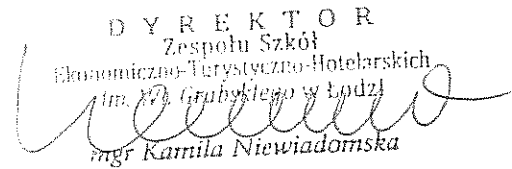 D Y R E K T O R
Zespołu Szkół
Ekonomiczno-Turystyczno-Hotelarskich
im. Wł. Grabskiego w Łodzi
mgr Kamila Niewiadomska